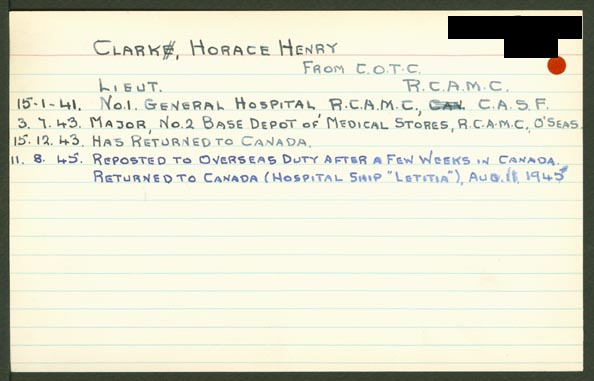 CLARK, HORACE HENRY
FROM C.O.T.C.
LIEUT. R.C.A.M.C.
15-1-41. NO.1. GENERAL HOSPITAL R.C.A.M.C., C.A.S.F.
3. 7. 43. MAJOR, NO.2 BASE DEPOT OF MEDICAL STORES, R.C.A.M.C, O'SEAS.
15. 12. 43. HAS RETURNED TO CANADA.
11. 8. 45. REPOSTED TO OVERSEAS DUTY AFTER A FEW WEEKS IN CANADA.
RETURNED TO CANADA (HOSPITAL SHIP "LETITIA"), AUG. 11, 1945